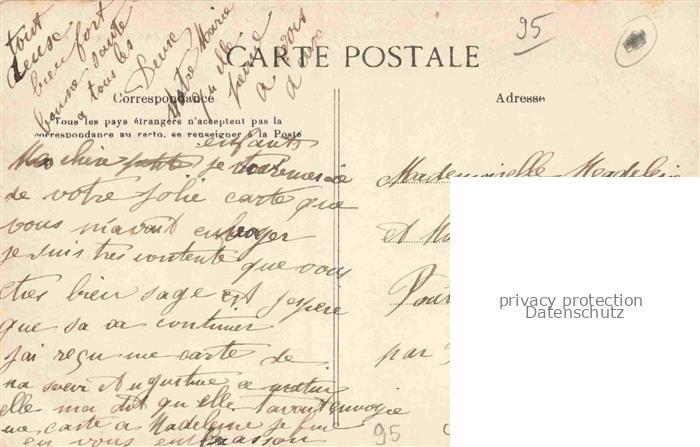 tout
deux
bien fort
bonne santé
a tous les
Deux
Votre Marie
qui
pense
a vous
95
CARTE POSTALE
Correspondance
Adresse
Tous les pays étrangers n'acceptent pas la
correspondance au recto, se renseigner à la Poste
enfants
Ma chère petite je vous remercie
de votre jolie carte que
vous m'avait envoyer
je suis très contente que vous
etes bien sage et j'espère
que sa va continuer
j'ai reçu une carte de
ma soeur Augustine ce matin
elle ma dit qu'elle t'avait envoyé
une carte a Madeleine je fini
en vous embrasson
Mademoiselle Madeleine
et
par
privacy protection
Datenschutz
95